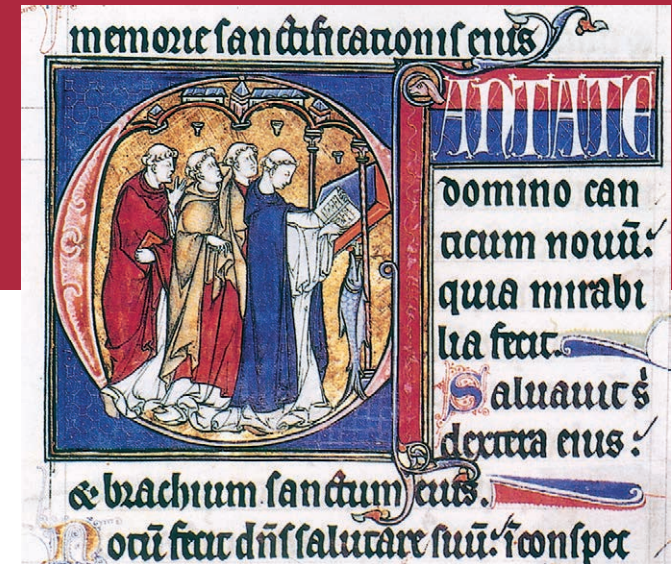 memorie sanctificationis eius
CANTATE
domino can
ticum nouū:
quia mirabi
lia fecit.
Saluauit s̄
dextera eius:
& brachium sanctum eius.
Notū fecit dn̄s salutare suū: ī conspec